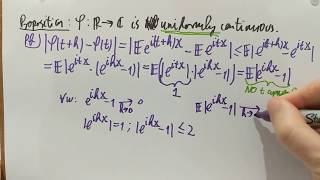 Proposition: φ: ℝ→ℂ is uniformly continuous.
Pf) |φ(t+h) - φ(t)| = |𝔼e^{i(t+h)X} - 𝔼e^{itX}| ≤ 𝔼|e^{i(t+h)X} - e^{itX}|
= 𝔼|e^{itX}·(e^{ihX}-1)| = 𝔼(|e^{itX}|·|e^{ihX}-1|) = 𝔼|e^{ihX}-1|
1
NO t
∀w: e^{ihX}-1 → 0
h→0
𝔼|e^{ihX}-1| →
h→
|e^{ihX}|=1; |e^{ihX}-1| ≤ 2